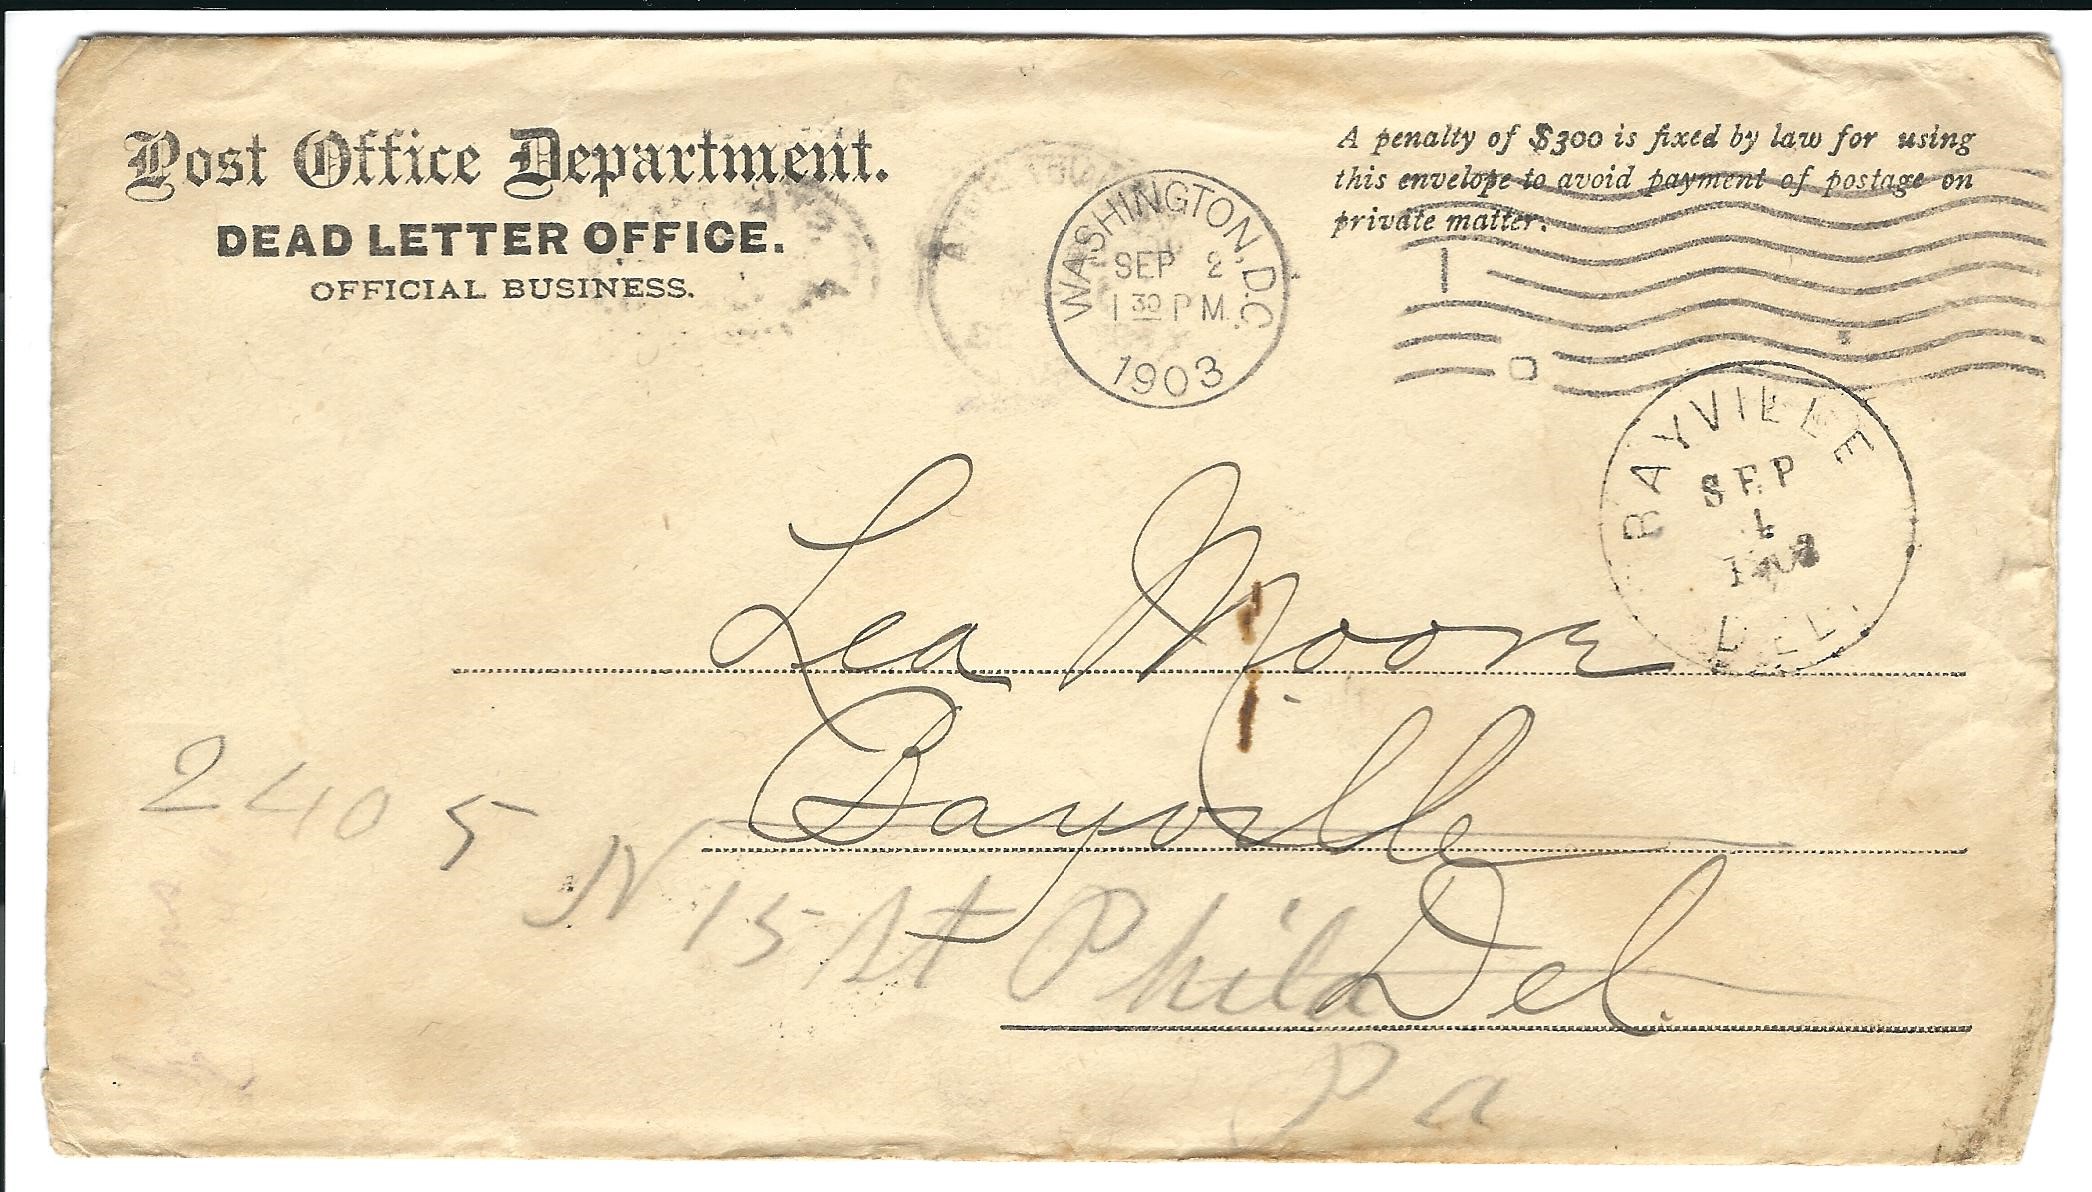 Post Office Department.
DEAD LETTER OFFICE.
OFFICIAL BUSINESS.
A penalty of $300 is fixed by law for using
this envelope to avoid payment of postage on
private matter.
WASHINGTON, D.C.
SEP 2
1 30 PM
1903
BAYVILLE
SEP
4
DEL.
Lea Moore
Bayville
Del.
2405 N 15 St Phila
Pa